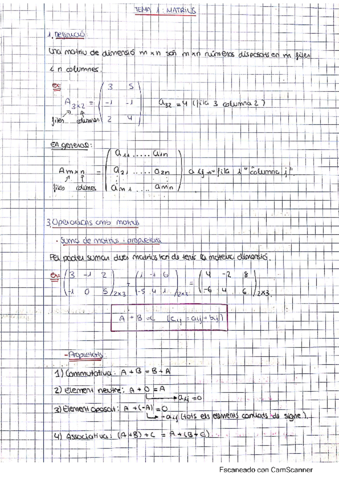 TEMA 1: MATRIUS
1. Definició
Una matriu de dimensió m×n són m×n números disposats en m files
i n columnes:
Ex:
A3×2 = ( 3 5 / -1 -1 / 2 4 ) a32 = 4 (fila 3 columna 2)
files columnes
En general:
Am×n = ( a11 ..... a1n / a21 .... a2n / am1 .... amn ) aij = fila i "columna j"
files columnes
3. Operacions amb matrius
- Suma de matrius
Per poder sumar dues matrius han de tenir la mateixa dimensió.
Ex: ( 3 -1 2 / -1 0 5 )2×3 + ( 1 -1 6 / -5 4 1 )2×3 = ( 4 -2 8 / -6 4 6 )2×3
A + B = C (cij = aij + bij)
- Propietats
1) Commutativa: A + B = B + A
2) Element neutre: A + 0 = A
→ aij = 0
3) Element oposat: A + (-A) = 0
→ -aij (tots els elements canviats de signe)
4) Associativa: (A + B) + C = A + (B + C)
Escaneado con CamScanner